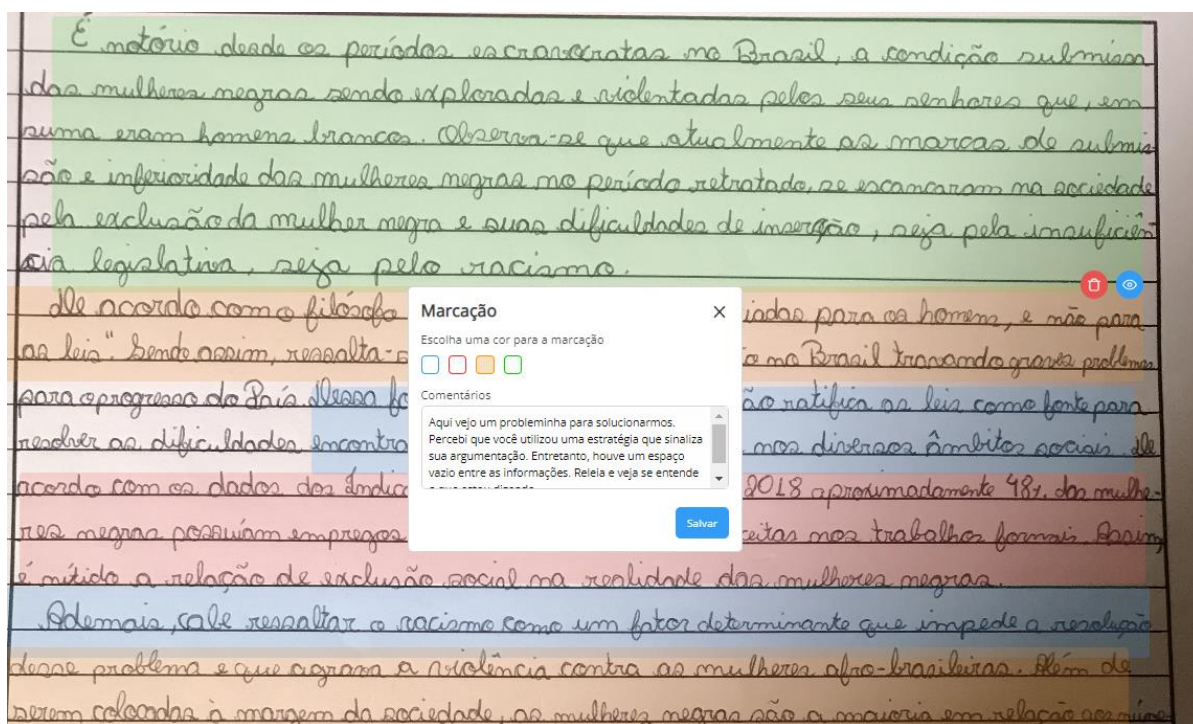 É notório desde os períodos escravocratas no Brasil, a condição submissa
das mulheres negras sendo exploradas e violentadas pelos seus senhores que, em
suma eram homens brancos. Observa-se que atualmente as marcas de submis-
são e inferioridade das mulheres negras no período retratado, se escancaram na sociedade
pela exclusão da mulher negra e suas dificuldades de inserção, seja pela insuficiên
cia legislativa, seja pelo racismo.
De acordo com o filósofo
iadas para os homens, e não para
as leis" Sendo assim, ressalta-s
no Brasil travando graves problemas
para o progresso do País Dessa fo
ão ratifica as leis como fonte para
resolver as dificuldades encontra
nos diversos âmbitos sociais De
acordo com os dados dos Índic
2018 aproximadamente 48%. das mulhe-
res negras possuíam empregos
eitas nos trabalhos formais Assim,
é nítido a relação de exclusão social na realidade das mulheres negras.
Ademais, cabe ressaltar o racismo como um fator determinante que impede a resolução
desse problema e que agrava a violência contra as mulheres afro-brasileiras. Além de
serem colocadas à margem da sociedade, as mulheres negras são a maioria em relação aos
Marcação
Escolha uma cor para a marcação
Comentários
Aqui vejo um probleminha para solucionarmos.
Percebi que você utilizou uma estratégia que sinaliza
sua argumentação. Entretanto, houve um espaço
vazio entre as informações. Releia e veja se entende
o que estou dizendo
Salvar